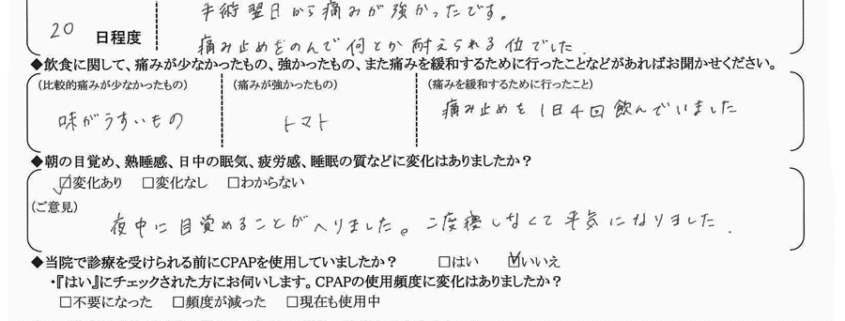 20 日程度
手術翌日から痛みが強かったです。
痛み止めをのんで何とか耐えられる位でした.
◆飲食に関して、痛みが少なかったもの、強かったもの、また痛みを緩和するために行ったことなどがあればお聞かせください。
(比較的痛みが少なかったもの) (痛みが強かったもの) (痛みを緩和するために行ったこと)
味がうすいもの トマト 痛み止めを1日4回飲んでいました
◆朝の目覚め、熟睡感、日中の眠気、疲労感、睡眠の質などに変化はありましたか?
☑変化あり □変化なし □わからない
(ご意見)
夜中に目覚めることがへりました。二度寝しなくて平気になりました.
◆当院で診療を受けられる前にCPAPを使用していましたか? □はい ☑いいえ
・『はい』にチェックされた方にお伺いします。CPAPの使用頻度に変化はありましたか?
□不要になった □頻度が減った □現在も使用中